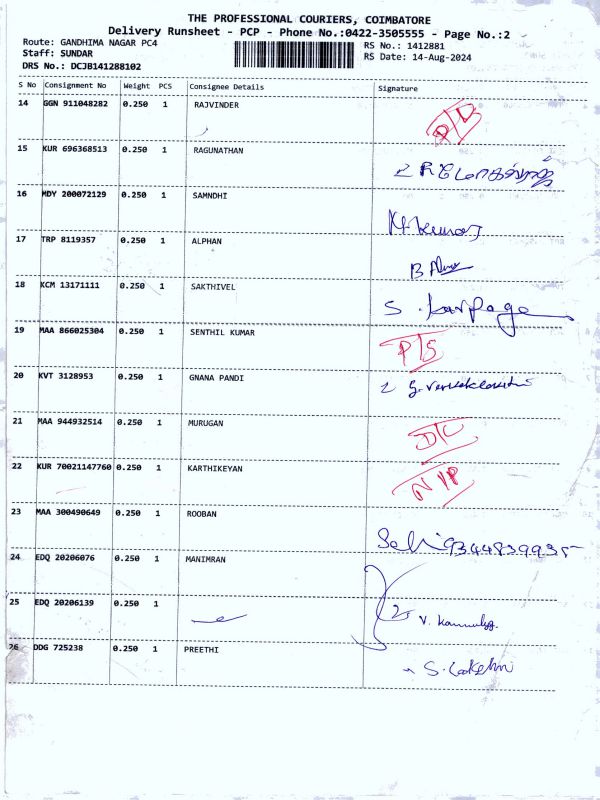 THE PROFESSIONAL COURIERS, COIMBATORE
Delivery Runsheet - PCP - Phone No.:0422-3505555 - Page No.:2
Route: GANDHIMA NAGAR PC4
RS No.: 1412881
Staff: SUNDAR
RS Date: 14-Aug-2024
DRS No.: DCJB141288102
S No Consignment No Weight PCS Consignee Details Signature
14 GGN 911048282 0.250 1 RAJVINDER
15 KUR 696368513 0.250 1 RAGUNATHAN
16 MDY 200072129 0.250 1 SAMNDHI
M Kumar
17 TRP 8119357 0.250 1 ALPHAN
18 KCM 13171111 0.250 1 SAKTHIVEL
S. karpaga
19 MAA 866025304 0.250 1 SENTHIL KUMAR
P/S
20 KVT 3128953 0.250 1 GNANA PANDI
21 MAA 944932514 0.250 1 MURUGAN
D/C
22 KUR 70021147760 0.250 1 KARTHIKEYAN
N/P
23 MAA 300490649 0.250 1 ROOBAN
9344839935
24 EDQ 20206076 0.250 1 MANIMRAN
25 EDQ 20206139 0.250 1
26 DDG 725238 0.250 1 PREETHI